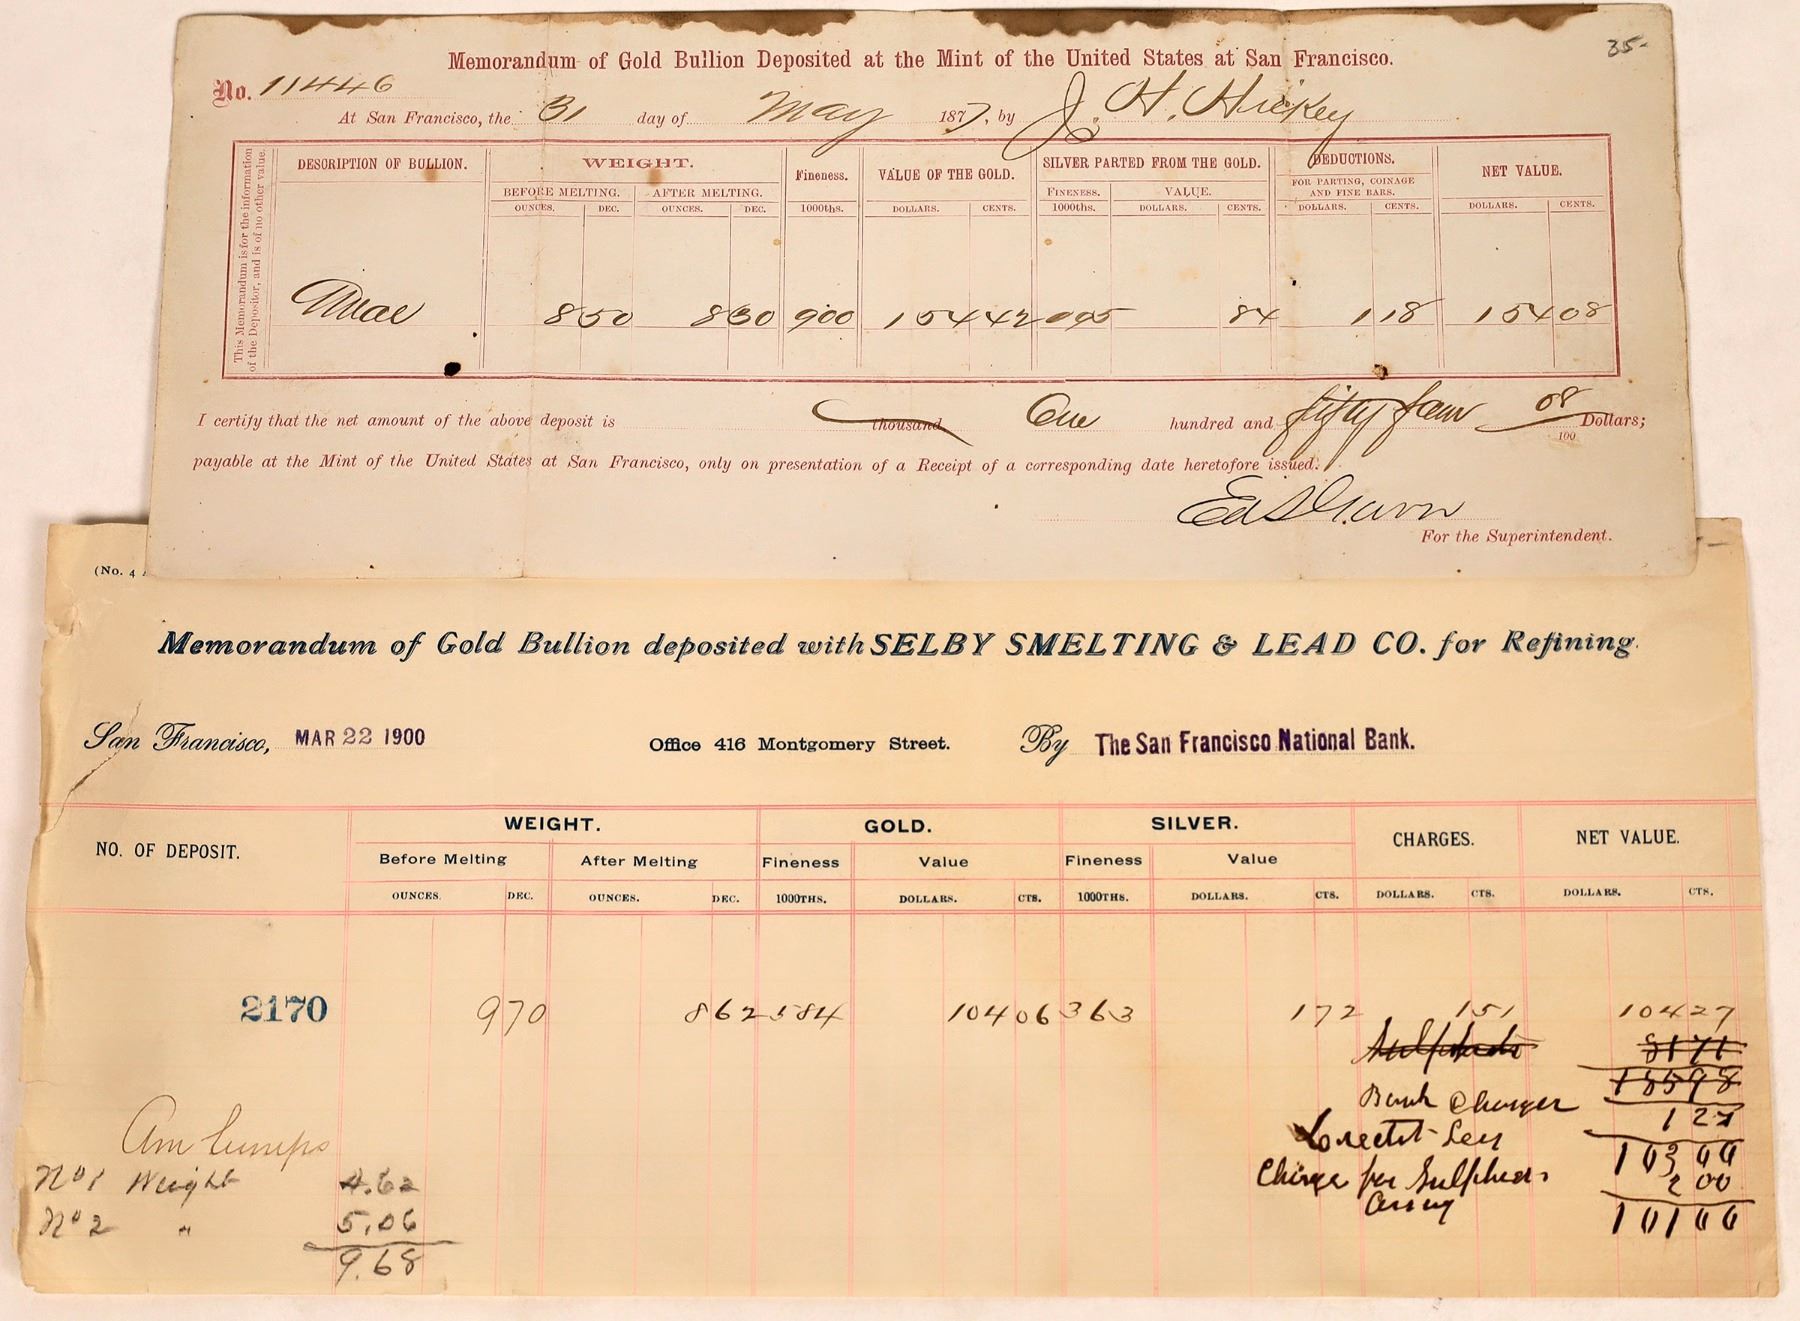 35-
Memorandum of Gold Bullion Deposited at the Mint of the United States at San Francisco.
No. 11446
At San Francisco, the 31 day of May 1877, by J. H. Hickey
This Memorandum is for the information of the Depositor, and is of no other value.
DESCRIPTION OF BULLION. WEIGHT. Fineness. VALUE OF THE GOLD. SILVER PARTED FROM THE GOLD. DEDUCTIONS. NET VALUE.
BEFORE MELTING. AFTER MELTING. FINENESS. VALUE. FOR PARTING, COINAGE AND FINE BARS.
OUNCES. DEC. OUNCES. DEC. 1000ths. DOLLARS. CENTS. 1000ths. DOLLARS. CENTS. DOLLARS. CENTS. DOLLARS. CENTS.
8 50 8 30 900 154 42 095 84 1 18 154 08
I certify that the net amount of the above deposit is thousand One hundred and fifty four 08/100 Dollars;
payable at the Mint of the United States at San Francisco, only on presentation of a Receipt of a corresponding date heretofore issued.
For the Superintendent.
(No. 4
Memorandum of Gold Bullion deposited with SELBY SMELTING & LEAD CO. for Refining.
San Francisco, MAR 22 1900 Office 416 Montgomery Street. By The San Francisco National Bank.
NO. OF DEPOSIT. WEIGHT. GOLD. SILVER. CHARGES. NET VALUE.
Before Melting After Melting Fineness Value Fineness Value
OUNCES. DEC. OUNCES. DEC. 1000THS. DOLLARS. CTS. 1000THS. DOLLARS. CTS. DOLLARS. CTS. DOLLARS. CTS.
2170 9 70 8 62 584 104 06 363 1 72 1 51 104 27
Sulphurets 81 71
185 98
Bank Charges 1 27
103 00
Charge for Sulphurets 2 00
Assay
101 00
Am
No 1 Weight 4.62
No 2 " 5.06
9.68